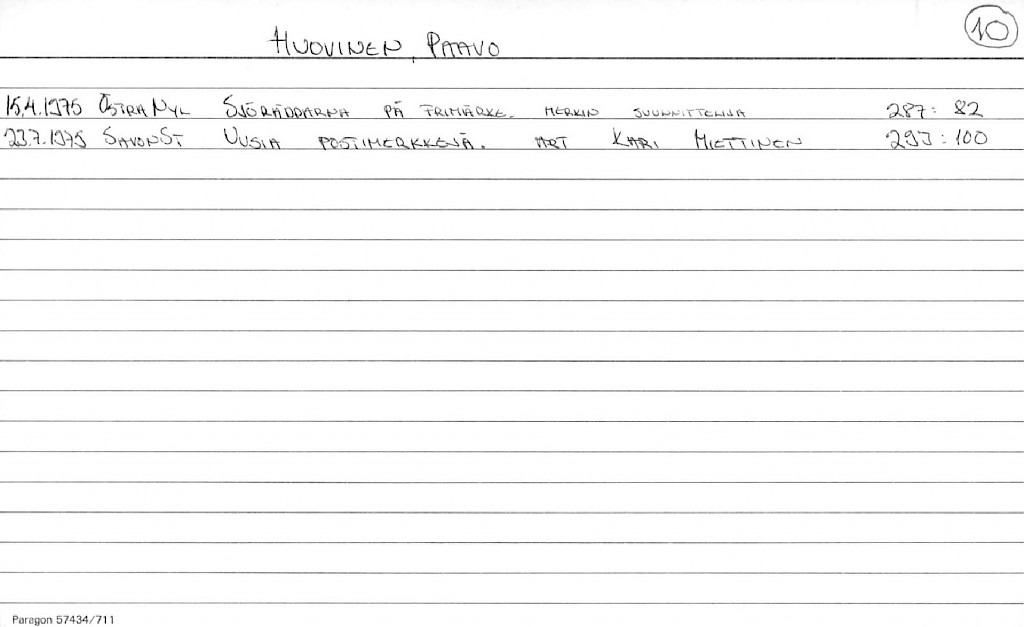 HUOVINEN, PAAVO 10
15.4.1975 ÖSTRA NYL SJÖRÄDDARNA PÅ FRIMÄRKE. MERKIN SUUNNITTELIJA 287: 82
23.7.1975 SAVONST UUSIA POSTIMERKKEJÄ. ART KARI MIETTINEN 293: 100
Paragon 57434/711